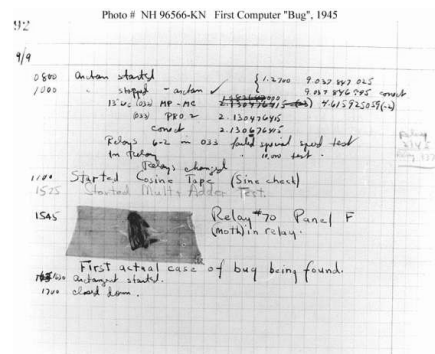 Photo # NH 96566-KN First Computer "Bug", 1945
92
9/9
0800 Antan started
1000 " stopped - antan ✓ { 1.2700 9.037 847 025
9.037 846 995 correct
13"uc (032) MP - MC 2.130476415 4.615925059(-2)
(033) PRO 2 2.130476415
correct 2.130676415
Relays 6-2 in 033 failed special speed test
in Relay " 10,000 test .
Relays changed
1100 Started Cosine Tape (Sine check)
1525 Started Mult+ Adder Test.
1545 Relay #70 Panel F
(Moth) in relay.
First actual case of bug being found.
1630 antangent started.
1700 closed down.